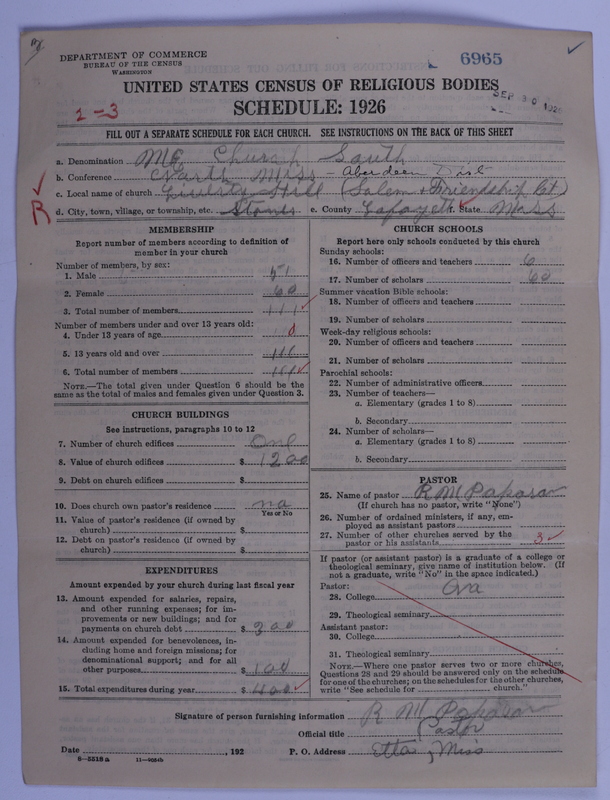 6965
DEPARTMENT OF COMMERCE
BUREAU OF THE CENSUS
WASHINGTON
UNITED STATES CENSUS OF RELIGIOUS BODIES
SCHEDULE: 1926
1-3
SEP 30 192
FILL OUT A SEPARATE SCHEDULE FOR EACH CHURCH. SEE INSTRUCTIONS ON THE BACK OF THIS SHEET
a. Denomination ME Church South
b. Conference North Miss - Aberdeen Dist
c. Local name of church Hill (Salem + Friendship
R
d. City, town, village, or township, etc. e. County Lafayette f. State Miss
MEMBERSHIP
Report number of members according to definition of
member in your church
Number of members, by sex:
1. Male 51
2. Female 60
3. Total number of members 111
Number of members under and over 13 years old:
4. Under 13 years of age 0
5. 13 years old and over 111
6. Total number of members 111
NOTE.—The total given under Question 6 should be the
same as the total of males and females given under Question 3.
CHURCH BUILDINGS
See instructions, paragraphs 10 to 12
7. Number of church edifices One
8. Value of church edifices $ 1200
9. Debt on church edifices $
10. Does church own pastor's residence no
Yes or No
11. Value of pastor's residence (if owned by
church) $
12. Debt on pastor's residence (if owned by
church) $
EXPENDITURES
Amount expended by your church during last fiscal year
13. Amount expended for salaries, repairs,
and other running expenses; for im-
provements or new buildings; and for
payments on church debt $ 300
14. Amount expended for benevolences, in-
cluding home and foreign missions; for
denominational support; and for all
other purposes $ 100
15. Total expenditures during year $ 400
CHURCH SCHOOLS
Report here only schools conducted by this church
Sunday schools:
16. Number of officers and teachers 6
17. Number of scholars 60
Summer vacation Bible schools:
18. Number of officers and teachers
19. Number of scholars
Week-day religious schools:
20. Number of officers and teachers
21. Number of scholars
Parochial schools:
22. Number of administrative officers
23. Number of teachers—
a. Elementary (grades 1 to 8)
b. Secondary
24. Number of scholars—
a. Elementary (grades 1 to 8)
b. Secondary
PASTOR
25. Name of pastor R M Papasan
(If church has no pastor, write "None")
26. Number of ordained ministers, if any, em-
ployed as assistant pastors
27. Number of other churches served by the
pastor or his assistants 3
If pastor (or assistant pastor) is a graduate of a college or
theological seminary, give name of institution below. (If
not a graduate, write "No" in the space indicated.)
Pastor:
28. College
29. Theological seminary
Assistant pastor:
30. College
31. Theological seminary
NOTE.—Where one pastor serves two or more churches,
Questions 28 and 29 should be answered only on the schedule
for one of the churches; on the schedules for the other churches,
write "See schedule for church."
Signature of person furnishing information R M Papasan
Official title Pastor
Date , 192 P. O. Address Etta, Miss
8-5518 a